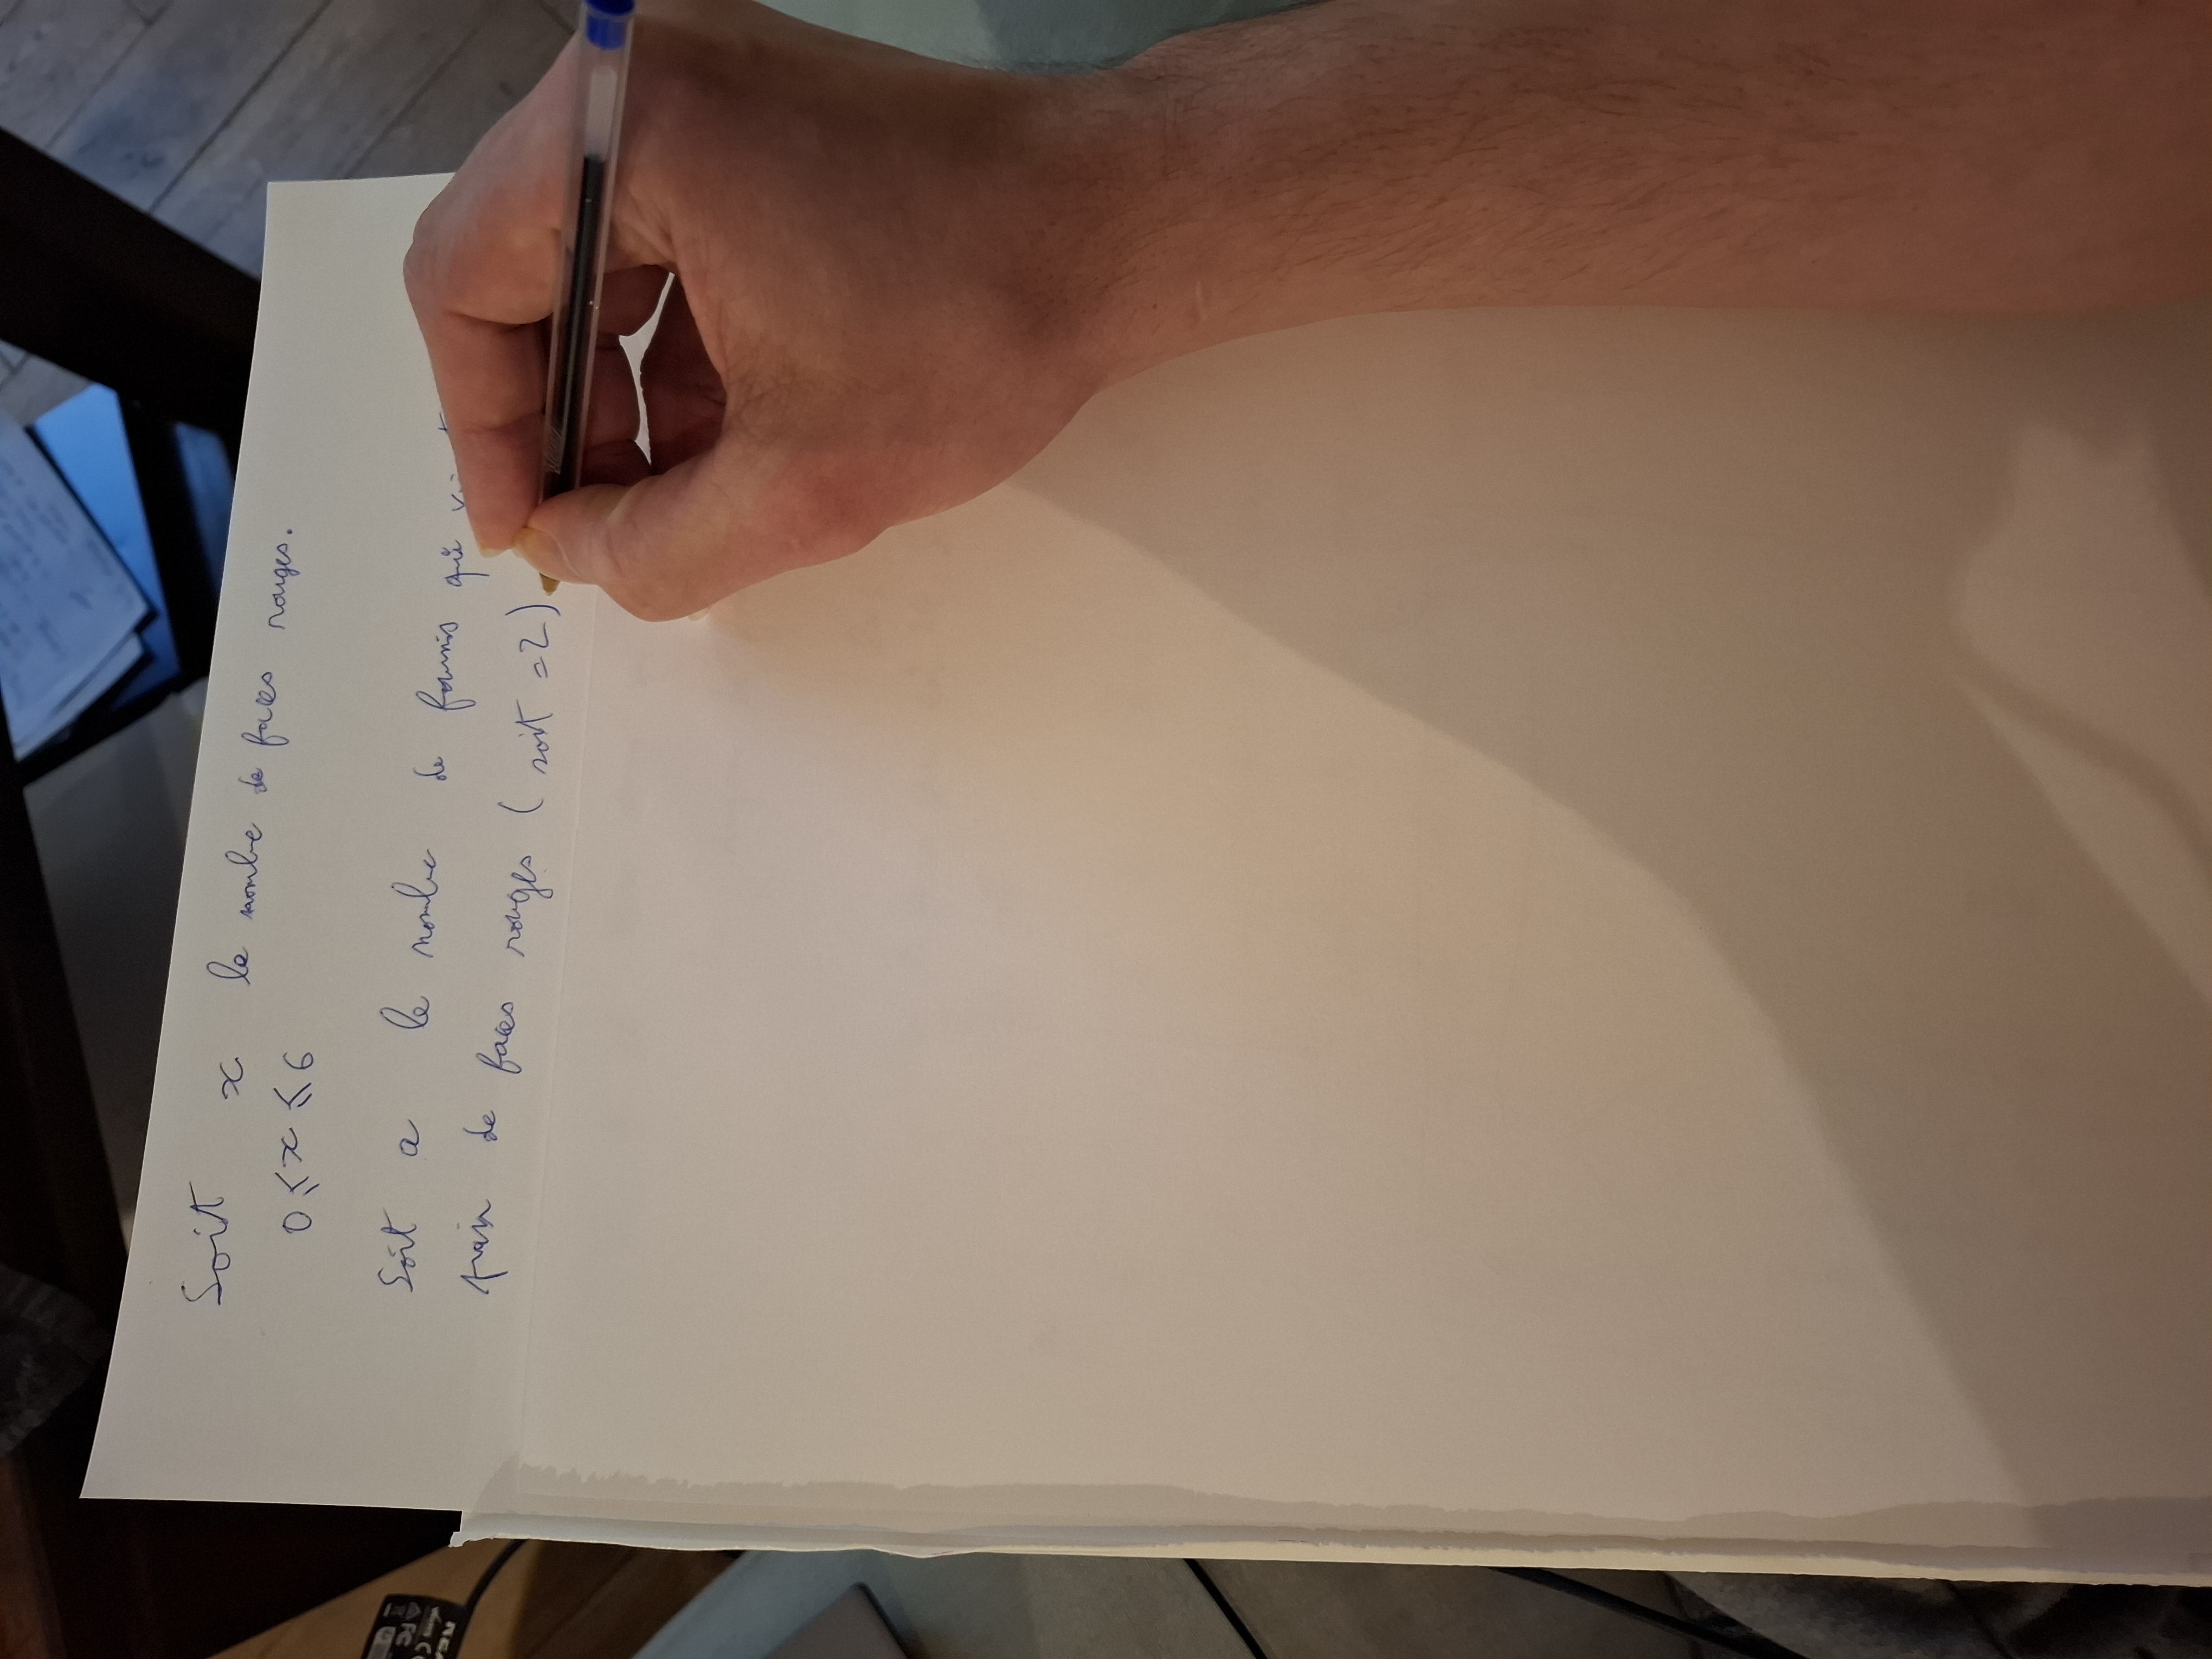 Soit x le nombre de faces rouges.
0 ⩽ x ⩽ 6
Soit a le nombre de fourmis qui
de faces rouges (soit = 2)